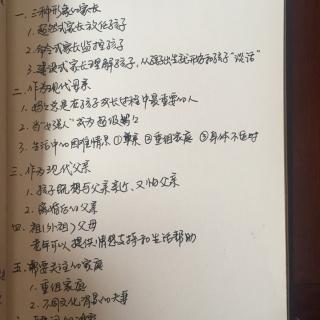 一、三种形象的家长
1.超然式家长放任孩子
2.命令式家长监控孩子
3.建设式家长理解孩子,从孩出生就开始和孩子“谈话”
二、作为现代母亲
1.妈妈总是在孩子成长过程中最重要的人
2.当“女强人”成为超级妈妈
3.生活中的困难情况 ①单亲 ②重组家庭 ③身体不适时
三、作为现代父亲
1.孩子既想与父亲亲近、又怕父亲
2.离婚后的父亲
四、祖(外祖)父母
老年可以提供情感支持和生活帮助
五、需要关注的家庭
1.重组家庭
2.不同文化背景的夫妻